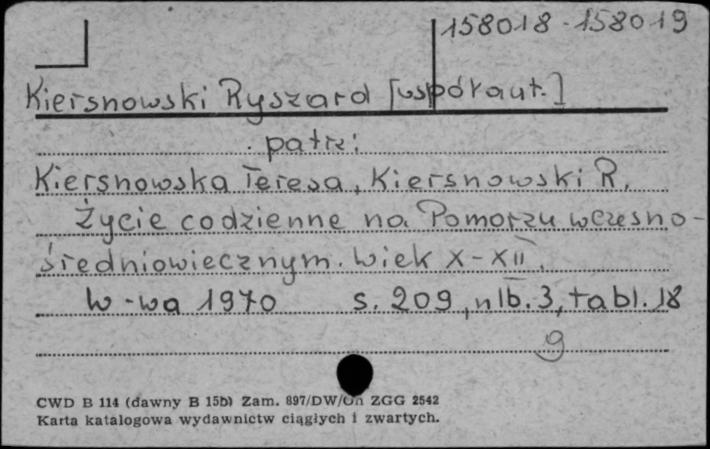 158018-158019
Kiersnowski Ryszard [współaut.]
patrz:
Kiersnowska Teresa, Kiersnowski R.
Życie codzienne na Pomorzu wczesno-
średniowiecznym. Wiek X-XII.
W-wa 1970 s. 209, nlb. 3, tabl. 18
g
CWD B 114 (dawny B 15b) Zam. 897/DW/Un ZGG 2542
Karta katalogowa wydawnictw ciągłych i zwartych.